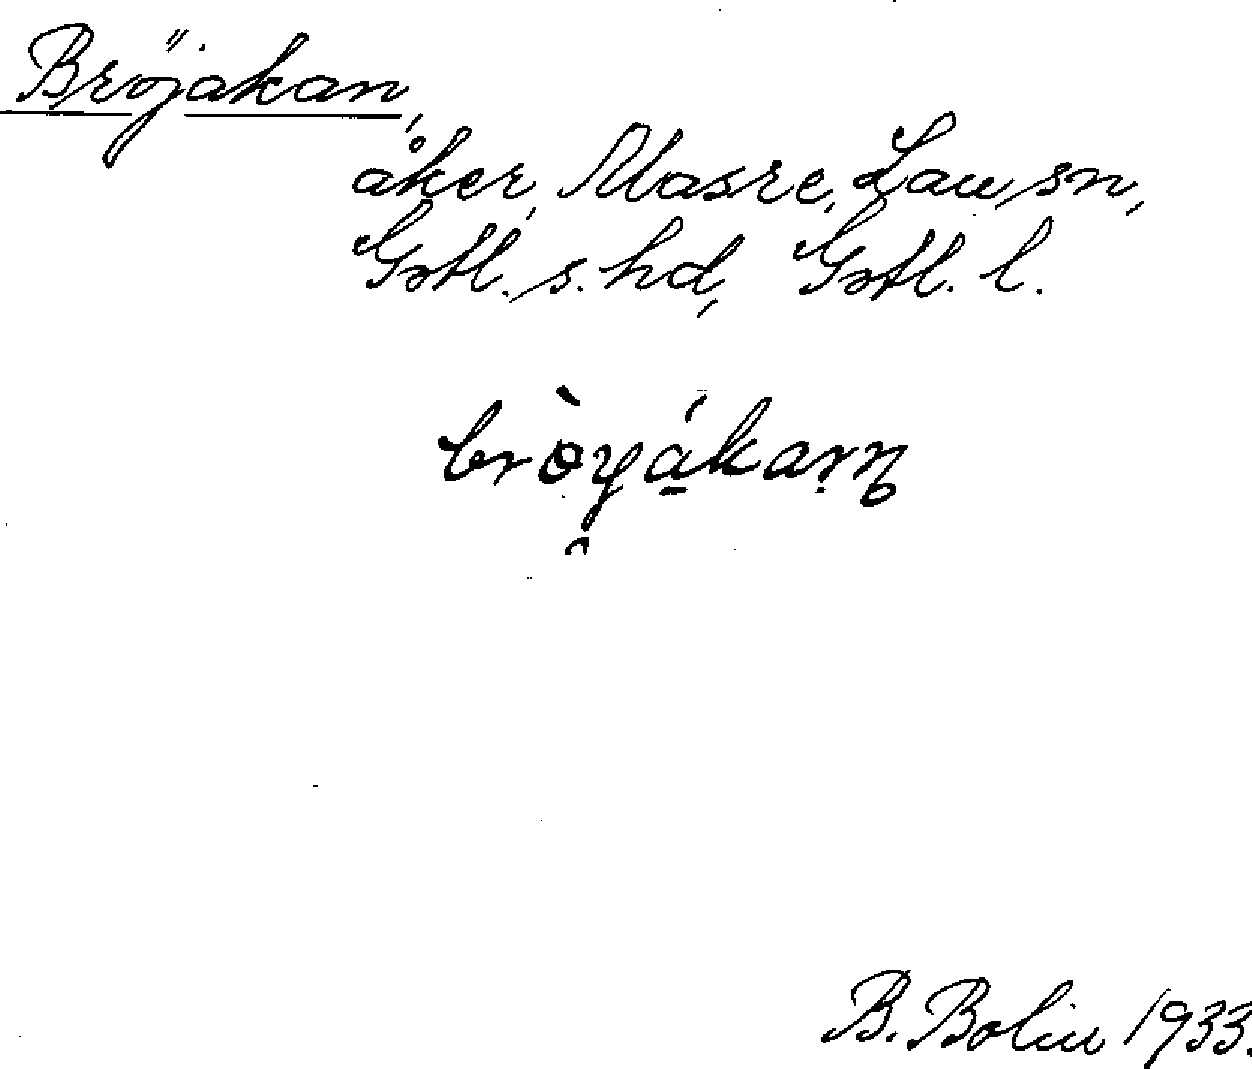 Bröjakan,
åker, Masre, Lau sn,
Gotl. s. hd, Gotl. l.
B. Bolin 1933.